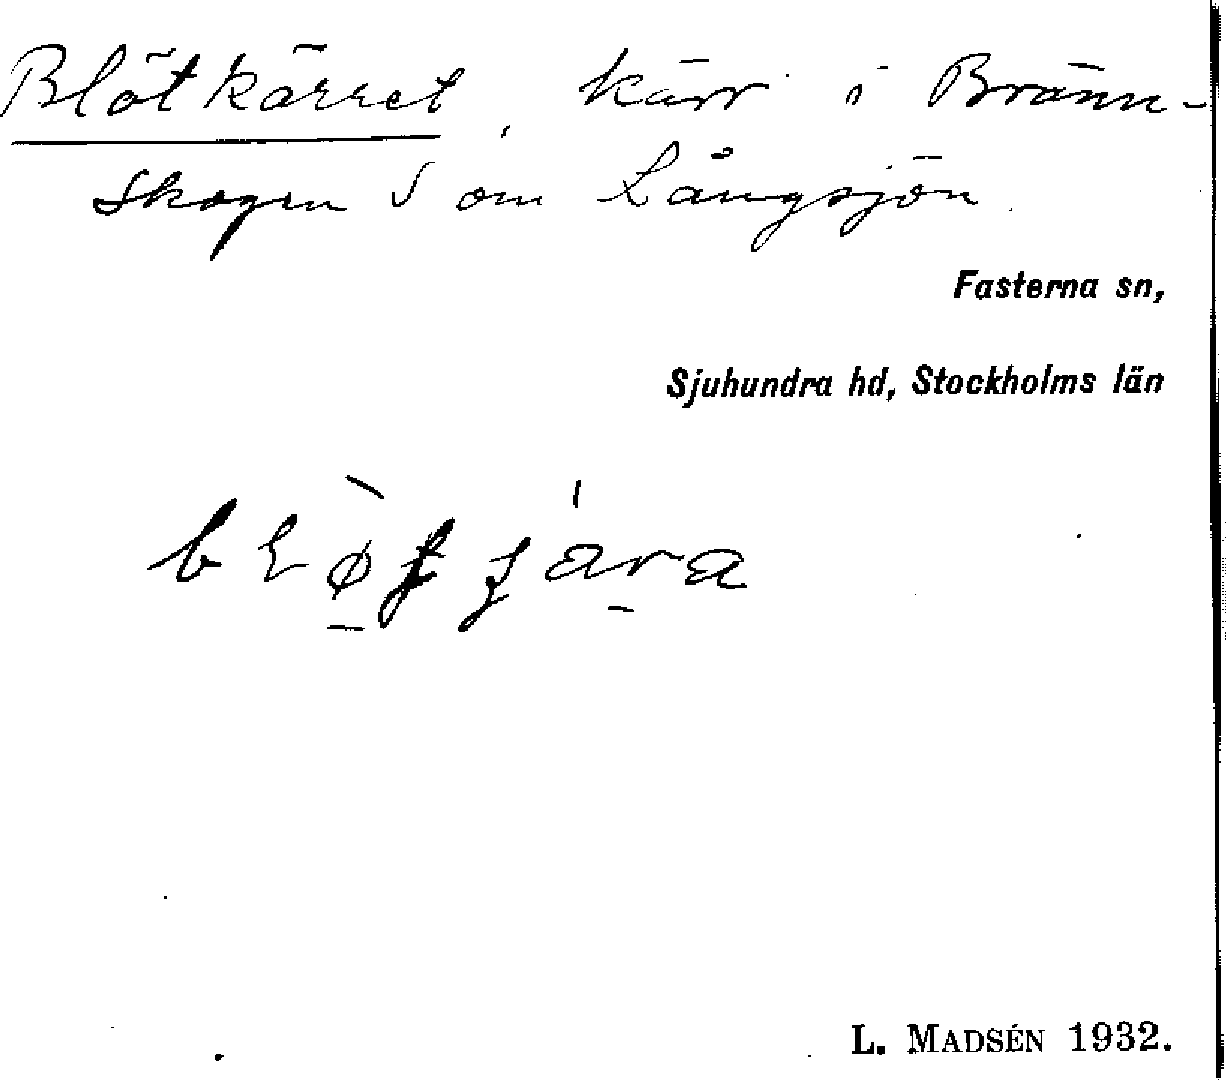 Blötkärret, kärr i Bränn-
skogen S om Långsjön.
Fasterna sn,
Sjuhundra hd, Stockholms län
L. MADSÉN 1932.